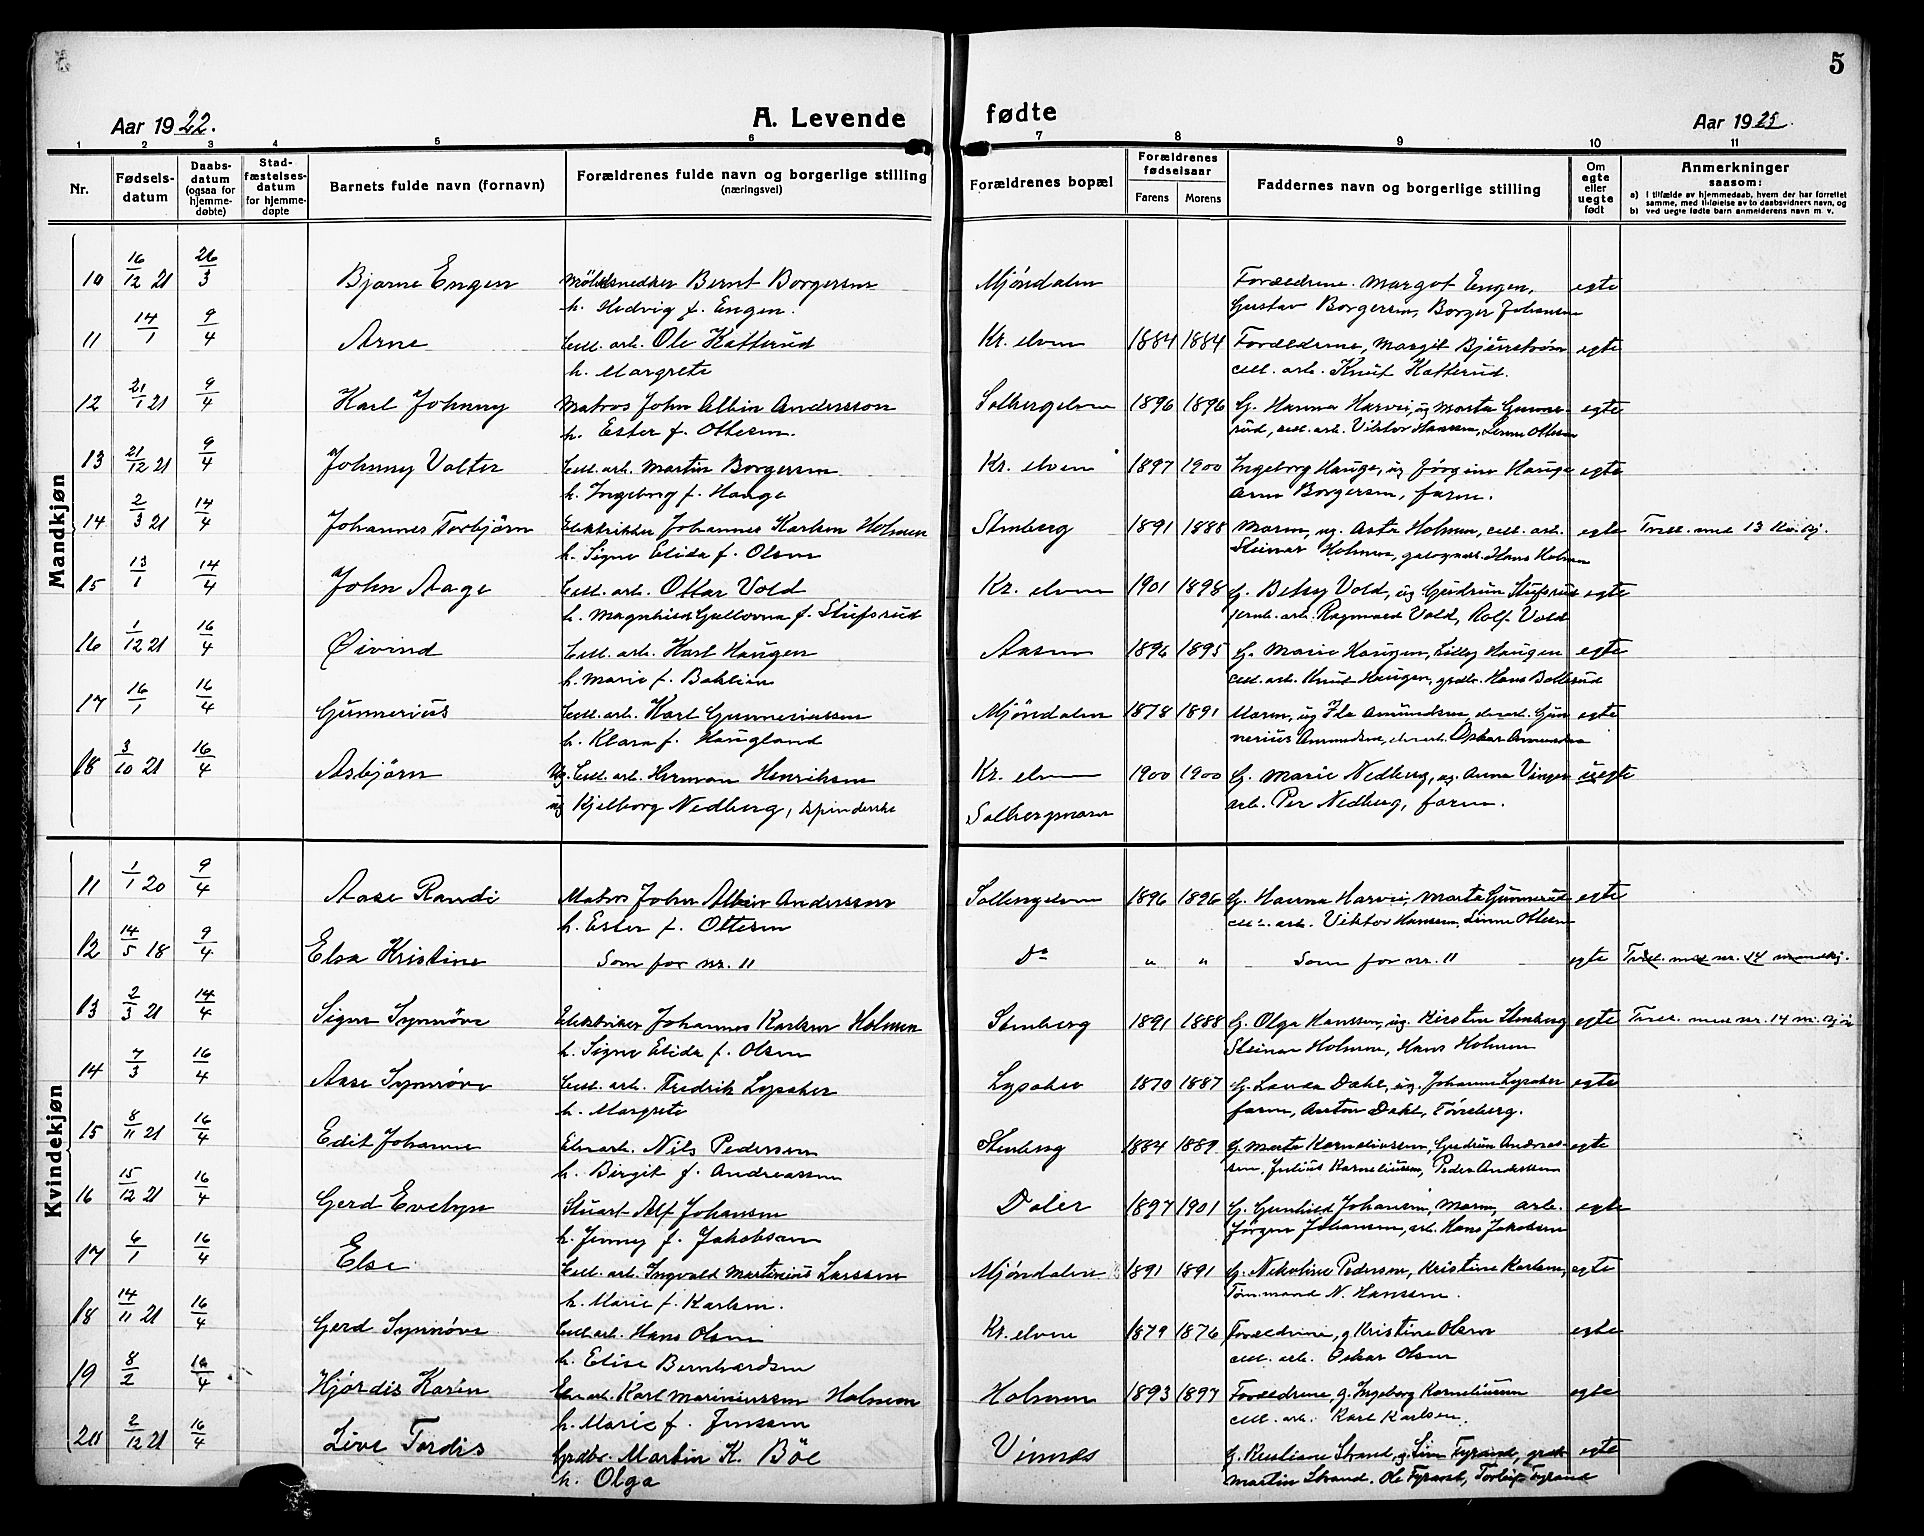 5
Aar 1922. A. Levende fødte Aar 1925.
1 2 3 4 5 6 7 8 9 10 11
Nr. Fødselsdatum Daabsdatum (ogsaa for hjemmedøbte) Stadfæstelsesdatum for hjemmedøpte Barnets fulde navn (fornavn) Forældrenes fulde navn og borgerlige stilling (næringsvei) Forældrenes bopæl Forældrenes fødselsaar Farens Morens Faddernes navn og borgerlige stilling Om egte eller uegte født Anmerkninger saasom:
a) I tilfælde av hjemmedaab, hvem der har forrettet samme, med tilføielse av to daabsvidners navn, og
b) ved uegte fødte barn anmelderens navn m. v.
Mandkjøn
10 16/12 21 26/3 Bjarne Engen Møbelsnedker Bernt Borgersen Mjöndalen Forældrene. Margot Engen, egte
h. Hedvig f. Engen. Gustav Borgersen, Borger Johansen
11 14/1 9/4 Arne Cell. arb. Ole Hatterud Kr. elven 1884 1884 Forældrene, Margit Bjernström egte
h. Margrete cell. arb. Knut Hatterud.
12 21/1 21 9/4 Karl Johnny Matros John Albin Andersson Solbergelven 1896 1896 G. Hanna Harvei, ug Marta Gunne- egte
h. Ester f. Ottesen. rud, cell. arb. Viktor Hansen, Linne Ottesen
13 21/12 21 9/4 Johnny Valter Cell. arb. Martin Borgersen Kr. elven 1897 1900 Ingeborg Hauge, ug Jörgine Hauge egte
h. Ingeborg f. Hauge Arne Borgersen, farm.
14 2/3 21 14/4 Johannes Torbjörn Elektriker Johannes Karlsen Holmen Stenberg 1891 1888 Morm, ug. Asta Holmen, cell. arb. egte Tvill. med 13 Kv.kj.
h. Signe Elida f. Olsen Steinar Holmen, Hans Holmen
15 13/1 14/4 John Aage Cell. arb. Ottar Vold Kr. elven 1901 1898 G. Betsy Vold, ug Gudrun Stufsrud egte
h. Magnhild Gullovna f. Stufsrud jernb. arb. Ragnvald Vold, Rolf Vold
16 1/12 21 16/4 Øivind Cell. arb. Karl Haugen Aasen 1896 1895 G. Marie Haugen, Lilly Haugen egte
h. Marie f. Baklien cell. arb. Knud Haugen, grdbr. Hans Bollerud
17 16/1 16/4 Gunnerius Cell. arb. Karl Gunneriussen Mjöndalen 1878 1891 Marm, ug Ida Amundsen, elvearb. Gun- egte
h. Klara f. Haugland nerius Amundsen, elvearb. Oskar Amundsen
18 3/10 21 16/4 Asbjörn Ug. Cell. arb. Herman Henriksen Kr. elven 1900 1900 G. Marie Nedberg, ug. Anna Vinger uegte
ug Kjelborg Nedberg, spinderske Solbergmoen arb. Per Nedberg, farm.
Kvindekjøn
11 1/1 20 9/4 Aase Randi Matros John Albin Andersson Solbergelven 1896 1896 G. Hanna Harvei, Marta Gunnerud egte
h. Ester f. Ottesen cell. arb. Viktor Hansen, Linne Ottesen
12 14/5 18 9/4 Elsa Kristine Som for nr. 11 Do " " Som for nr. 11 egte Tvill. med nr. 14 mandkj.
13 2/3 21 14/4 Signe Synnöve Elektriker Johannes Karlsen Holmen Stenberg 1891 1888 G. Olga Hanssen, ug. Kirsten Stenberg egte Tvill. med nr. 14 m. kjön
h. Signe Elida f. Olsen Steinar Holmen, Hans Holmen
14 7/3 16/4 Aase Synnöve Cell. arb. Fredrik Lysaker Lysaker 1870 1887 G. Laura Dahl, ug. Johanne Lysaker egte
h. Margrete farm, Anton Dahl, Töneberg.
15 8/11 21 16/4 Edit Johanne Elvearb. Nils Pedersen Stenberg 1884 1889 G. Marta Korneliussen, Gudrun Andreas- egte
h. Birgit f. Andreassen sen, Julius Korneliussen, Peder Andersen
16 15/12 21 16/4 Gerd Evelyn Stuart Alf Johansen Daler 1897 1901 G. Gunhild Johansen, Marm, arb. egte
h. Jenny f. Jakobsen Jörgen Johansen, arb. Hans Jakobsen
17 6/1 16/4 Else Cell. arb. Ingvald Martinius Larssen Mjöndalen 1891 1891 G. Nikoline Pedersen, Kristine Karlsen, egte
h. Marie f. Karlsen. Tömmand N. Hanssen.
18 14/11 21 16/4 Gerd Synnöve Cell. arb. Hans Olsen Kr. elven 1879 1876 Forældrene, g Kristine Olsen egte
h. Elise Bernhardsen cell. arb. Oskar Olsen
19 8/2 16/4 Hjördis Karin Elvearb. Karl Marinussen Holmen Holmen 1893 1897 Forældrene, g. Ingeborg Korneliussen egte
h. Marie f. Jenssen cell. arb. Karl Karlsen.
20 2/12 21 16/4 Live Tordis Grdbr. Martin K. Böe Vinnes G. Kristiane Strand, g. Lina Fyrand, grdb. egte
h. Olga Martin Strand. Ole Fyrand, Torleif Fyrand